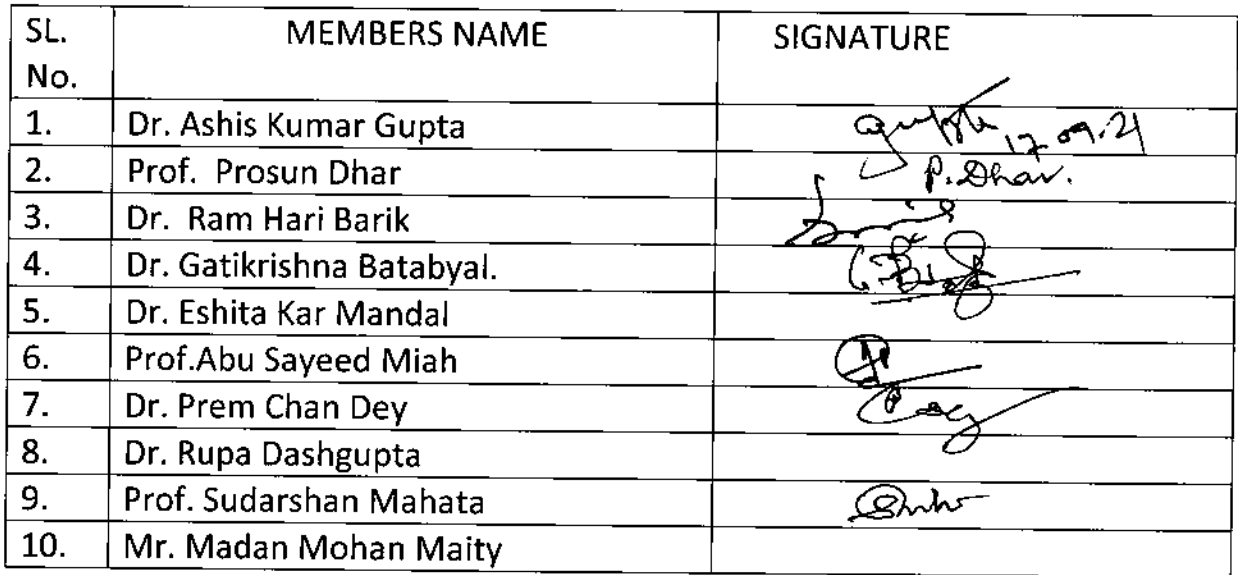 SL. No. MEMBERS NAME SIGNATURE
1. Dr. Ashis Kumar Gupta Gupta 17.09.21
2. Prof. Prosun Dhar P. Dhar.
3. Dr. Ram Hari Barik
4. Dr. Gatikrishna Batabyal.
5. Dr. Eshita Kar Mandal
6. Prof.Abu Sayeed Miah
7. Dr. Prem Chan Dey
8. Dr. Rupa Dashgupta
9. Prof. Sudarshan Mahata
10. Mr. Madan Mohan Maity